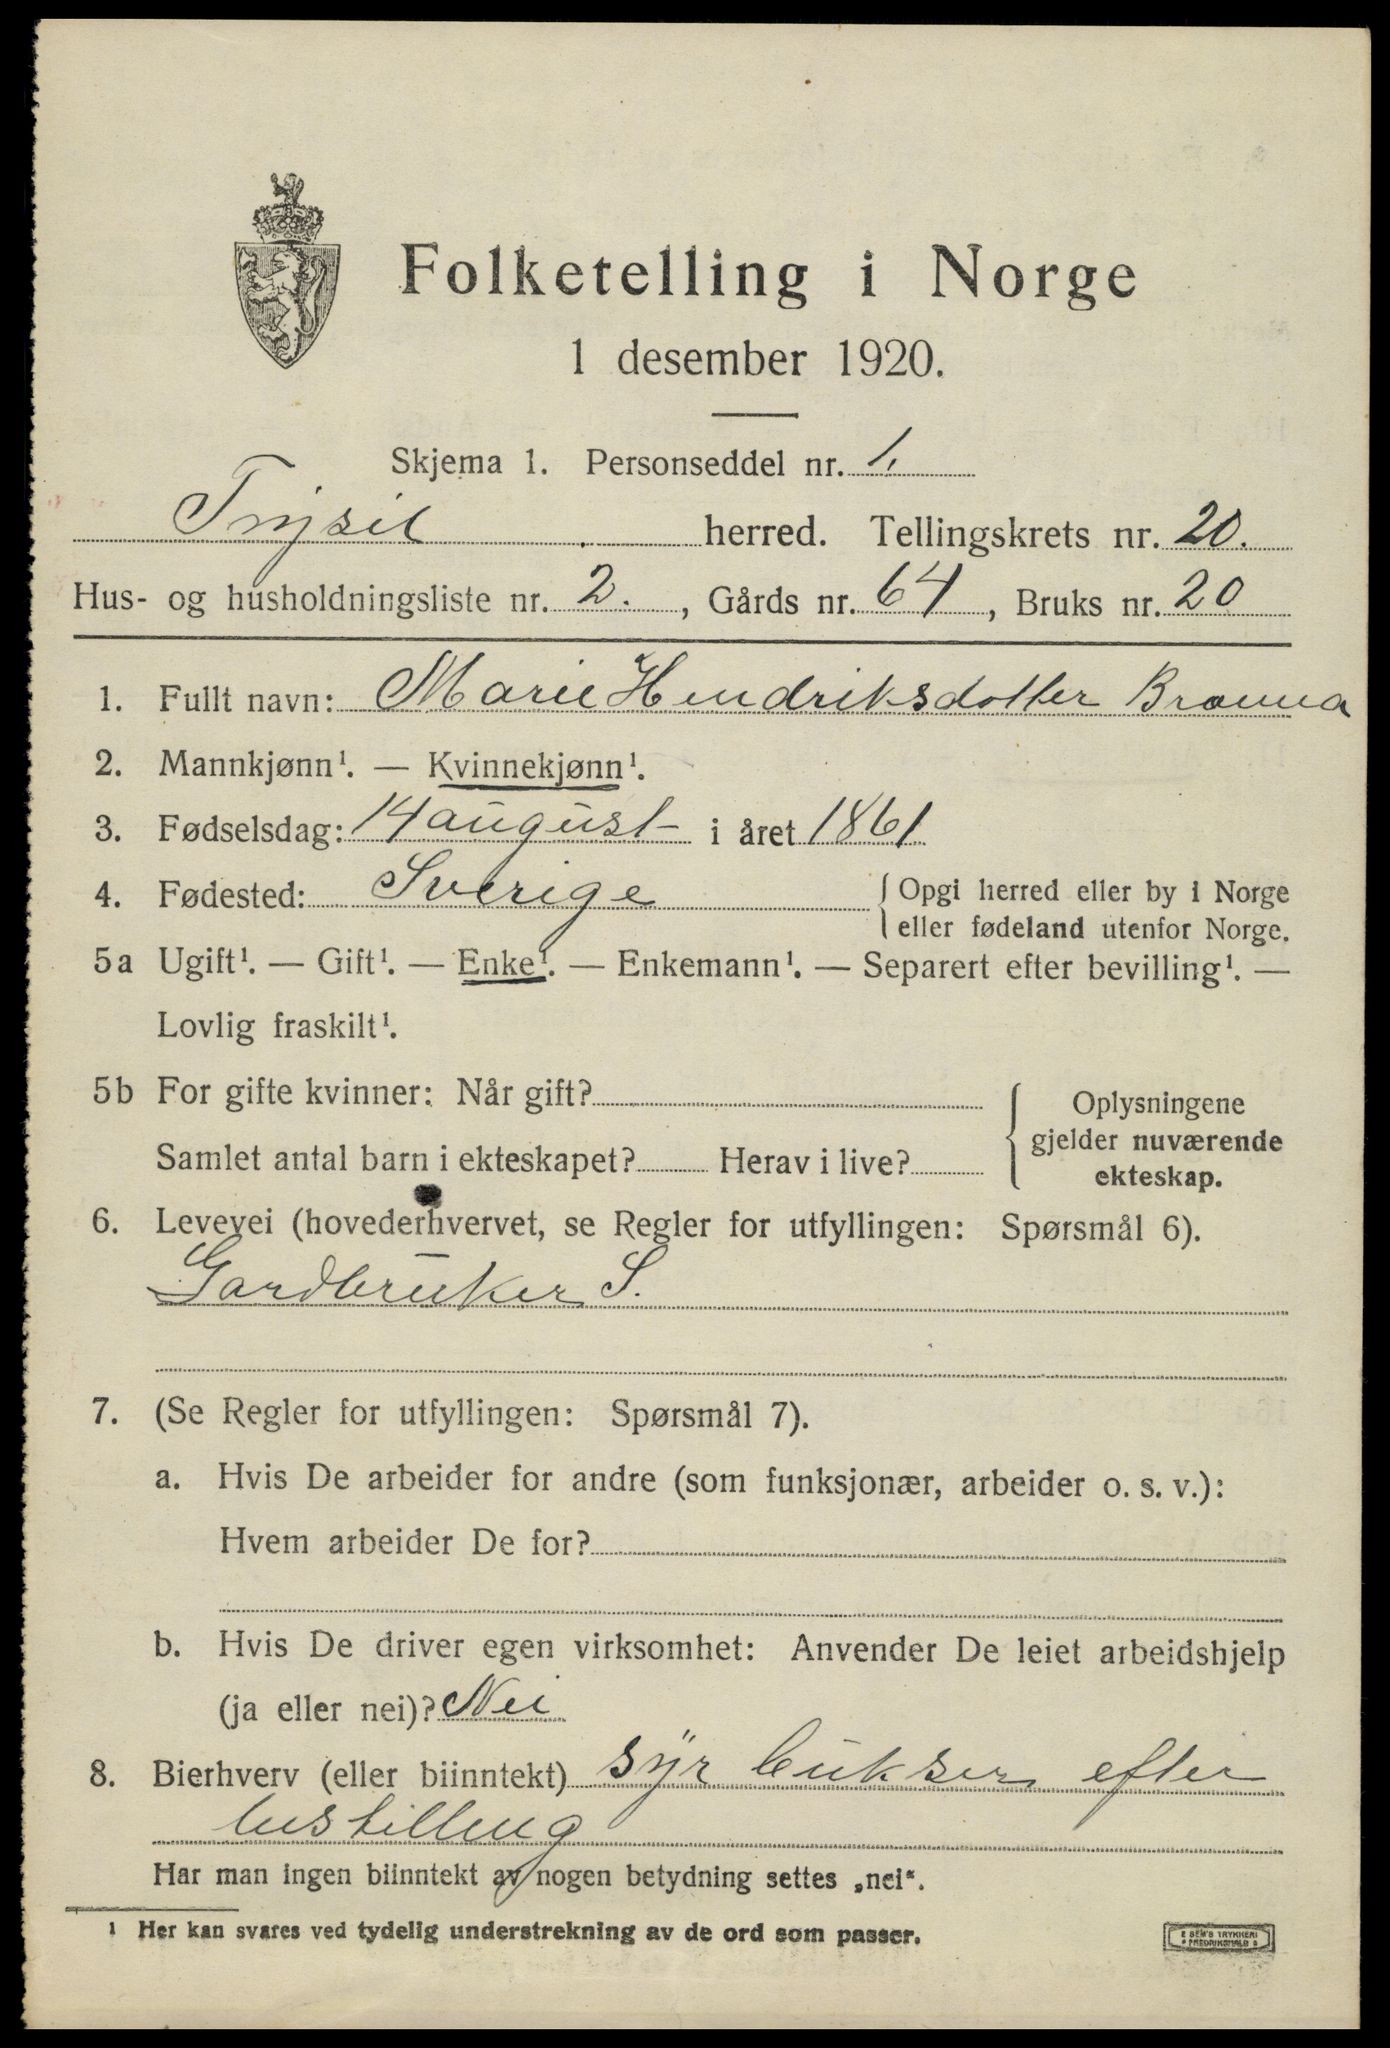 Folketelling i Norge
1 desember 1920.
Skjema 1. Personseddel nr. 1.
Trysil herred. Tellingskrets nr. 20.
Hus- og husholdningsliste nr. 2. , Gårds nr. 64 , Bruks nr. 20
1. Fullt navn: Marie Hendriksdotter
2. Mannkjønn¹. — Kvinnekjønn¹.
3. Fødselsdag: 14 august i året 1861
4. Fødested: Sverige { Opgi herred eller by i Norge
eller fødeland utenfor Norge.
5a Ugift¹. — Gift¹. — Enke¹. — Enkemann¹. — Separert efter bevilling¹. —
Lovlig fraskilt¹.
5b For gifte kvinner: Når gift? { Oplysningene
gjelder nuværende
Samlet antal barn i ekteskapet? Herav i live?
ekteskap.
6. Levevei (hovederhvervet, se Regler for utfyllingen: Spørsmål 6).
Gardbruker S.
7. (Se Regler for utfyllingen: Spørsmål 7).
a. Hvis De arbeider for andre (som funksjonær, arbeider o. s. v.):
Hvem arbeider De for?
b. Hvis De driver egen virksomhet: Anvender De leiet arbeidshjelp
(ja eller nei)? Nei
8. Bierhverv (eller biinntekt) syr bukser efter
bestilling
Har man ingen biinntekt av nogen betydning settes „nei“.
¹ Her kan svares ved tydelig understrekning av de ord som passer.
E SEM'S TRYKKERI
FREDRIKSHALD